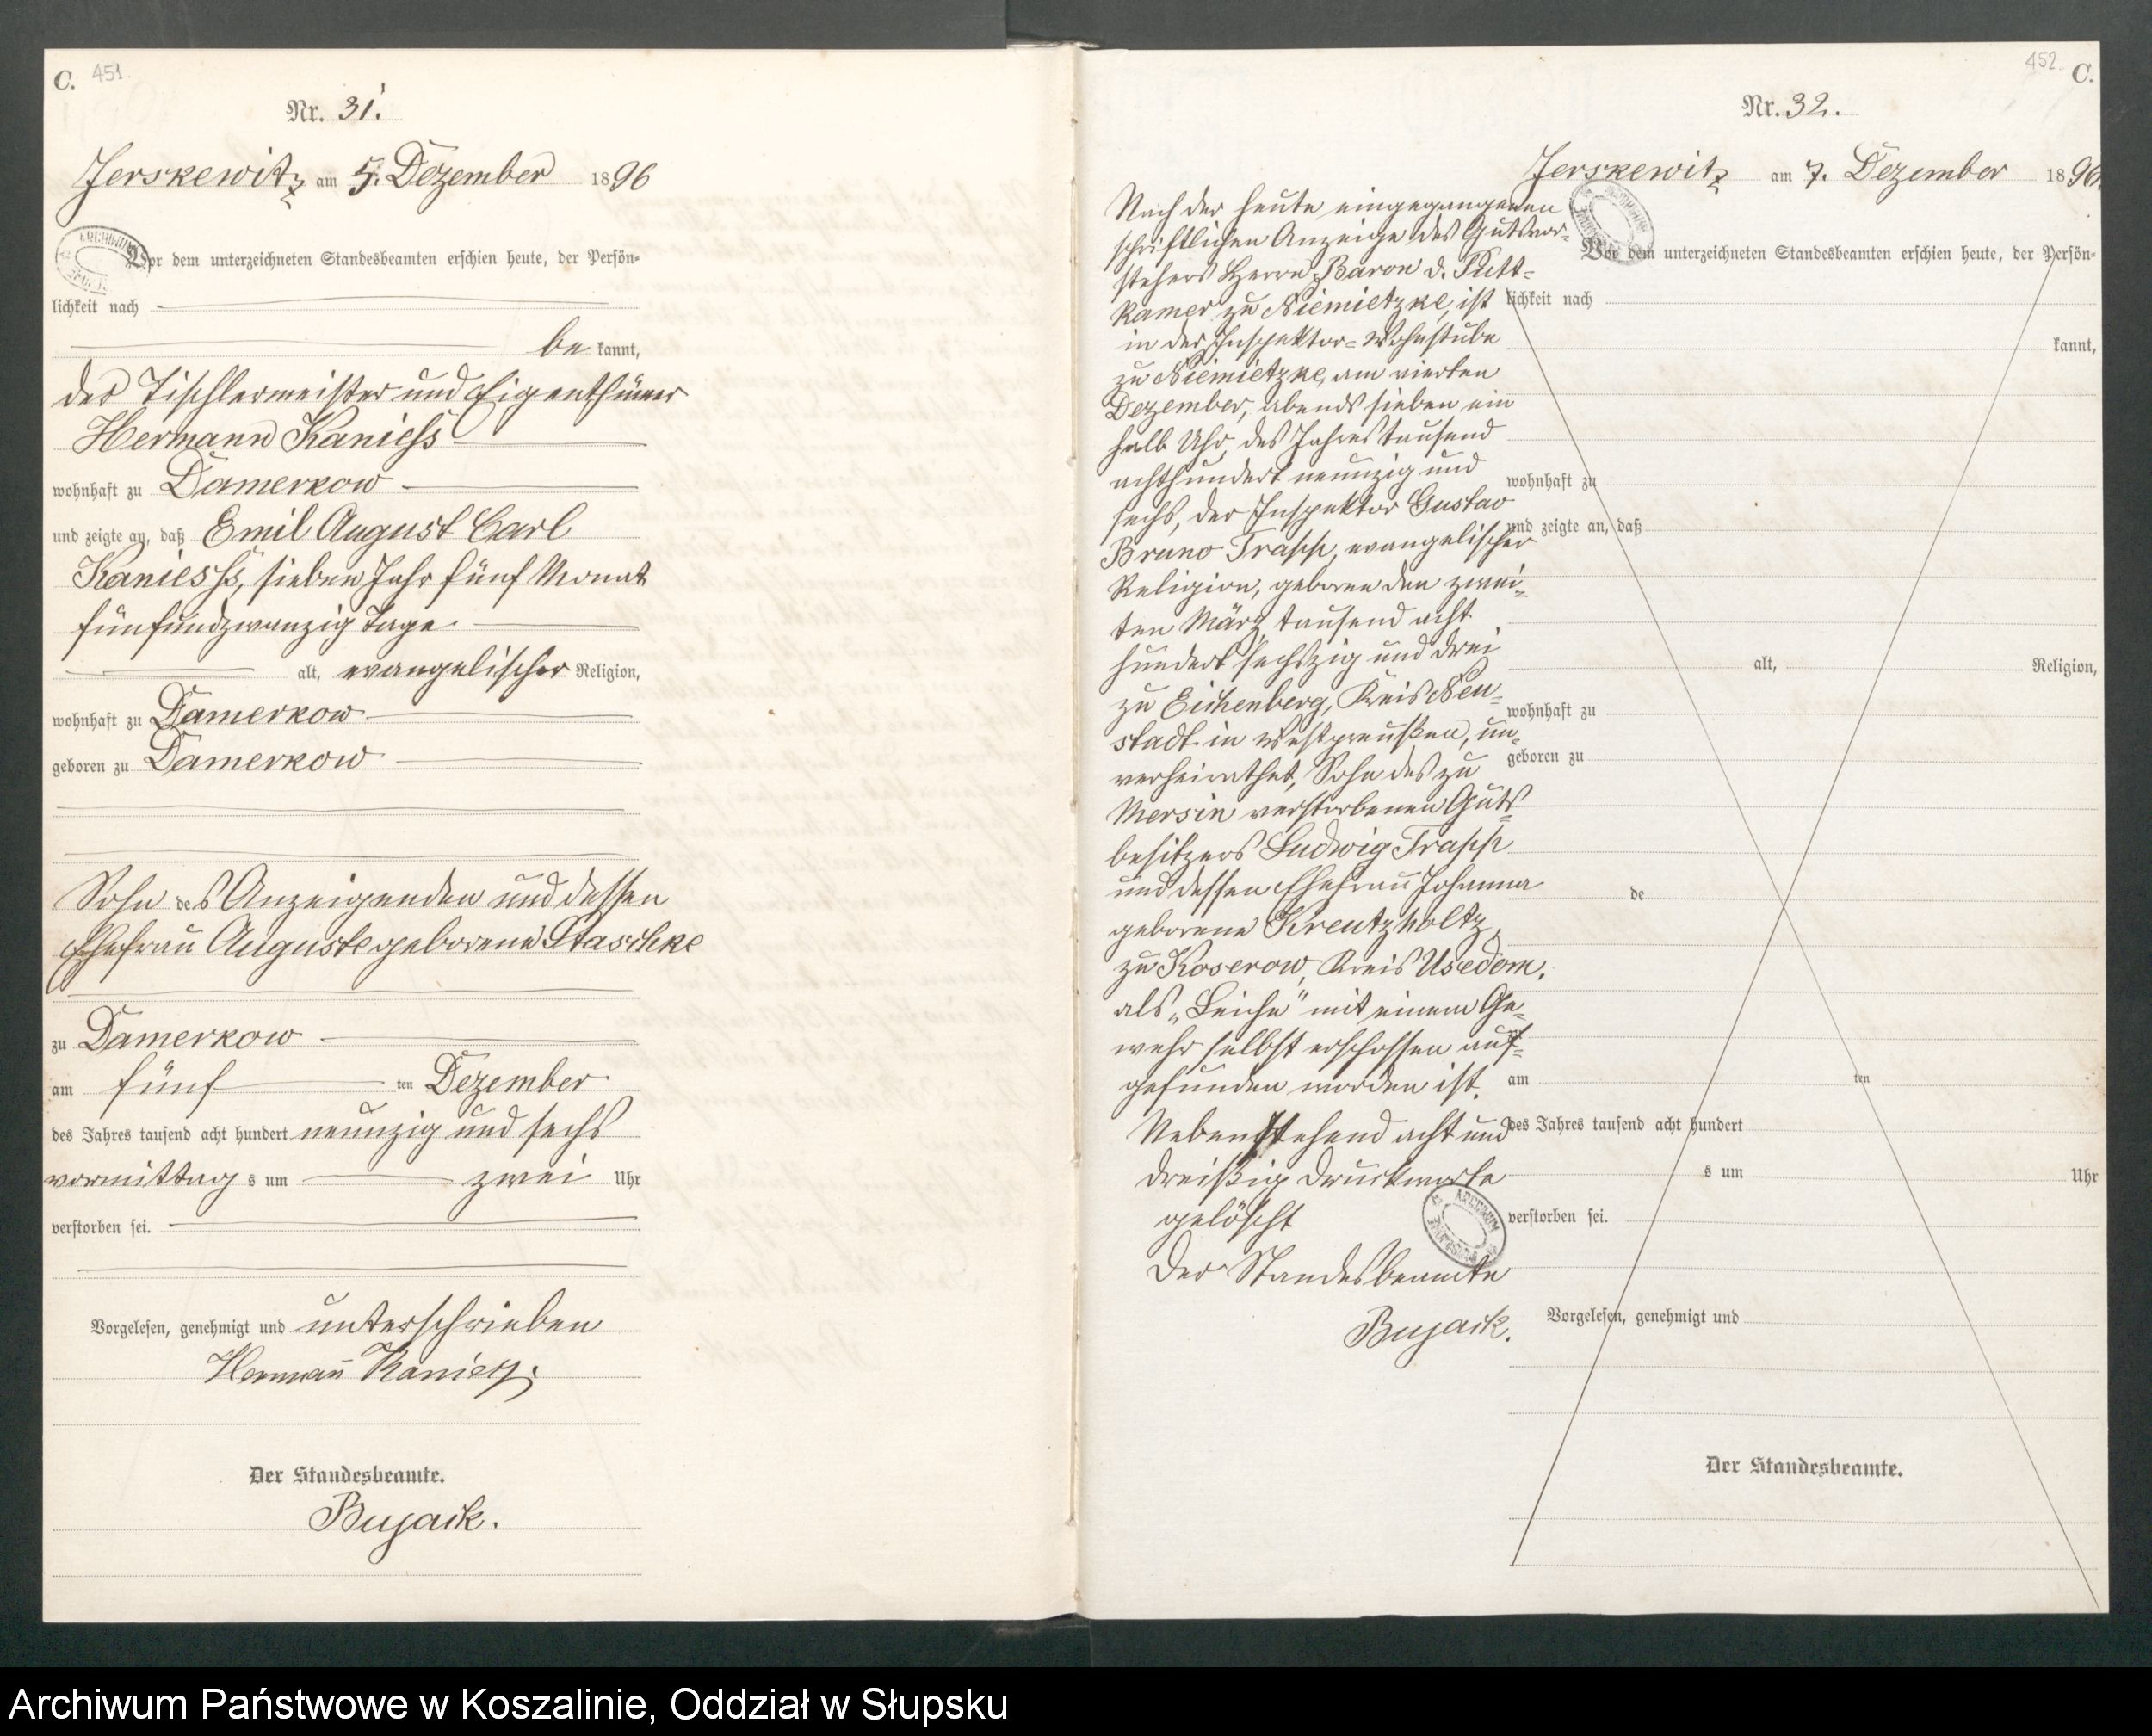 C. 451
Nr. 31.
Jerskewitz am 5. Dezember 1896
Vor dem unterzeichneten Standesbeamten erschien heute, der Persön-
lichkeit nach
be kannt,
der Tischlermeister und Eigenthümer
Hermann Kaniess
wohnhaft zu Damerkow
und zeigte an, daß Emil August Carl
Kaniess, sieben Jahr fünf Monat
fünfundzwanzig Tage
alt, evangelischer Religion,
wohnhaft zu Damerkow
geboren zu Damerkow
Sohn des Anzeigenden und dessen
Ehefrau Auguste geborene Staschke
zu Damerkow
am fünf ten Dezember
des Jahres tausend acht hundert neunzig und sechs
vormittag s um zwei Uhr
verstorben sei.
Vorgelesen, genehmigt und unterschrieben
Hermann Kaniess.
Der Standesbeamte.
Bujack.
452 C.
Nr. 32.
Jerskewitz am 7. Dezember 1896.
Nach der heute eingegangenen
schriftlichen Anzeige des Gutsvor-
stehers Herrn Baron v. Putt-
kamer zu Niemietzke, ist
in der Inspektor-Wohnstube
zu Niemietzke, am vierten
Dezember, abends sieben ein
halb Uhr, des Jahres tausend
achthundert neunzig und
sechs, der Inspektor Gustav
Bruno Trapp, evangelischer
Religion, geboren den zwei-
ten März tausend acht
hundert sechszig und drei
zu Eichenberg, Kreis Neu-
stadt in Westpreußen, un-
verheirathet, Sohn des zu
Mersin verstorbenen Guts-
besitzers Ludwig Trapp
und dessen Ehefrau Johanna
geborene Kreutzholtz,
zu Koserow, Kreis Usedom,
als „Leiche" mit einem Ge-
wehr selbst erschossen auf-
gefunden worden ist.
Nebenstehend acht und
dreißig Druckworte
gelöscht
Der Standesbeamte
Bujack.
Vor dem unterzeichneten Standesbeamten erschien heute, der Persön-
lichkeit nach
kannt,
wohnhaft zu
und zeigte an, daß
alt, Religion,
wohnhaft zu
geboren zu
de
am ten
des Jahres tausend acht hundert
s um Uhr
verstorben sei.
Vorgelesen, genehmigt und
Der Standesbeamte.
Archiwum Państwowe w Koszalinie, Oddział w Słupsku